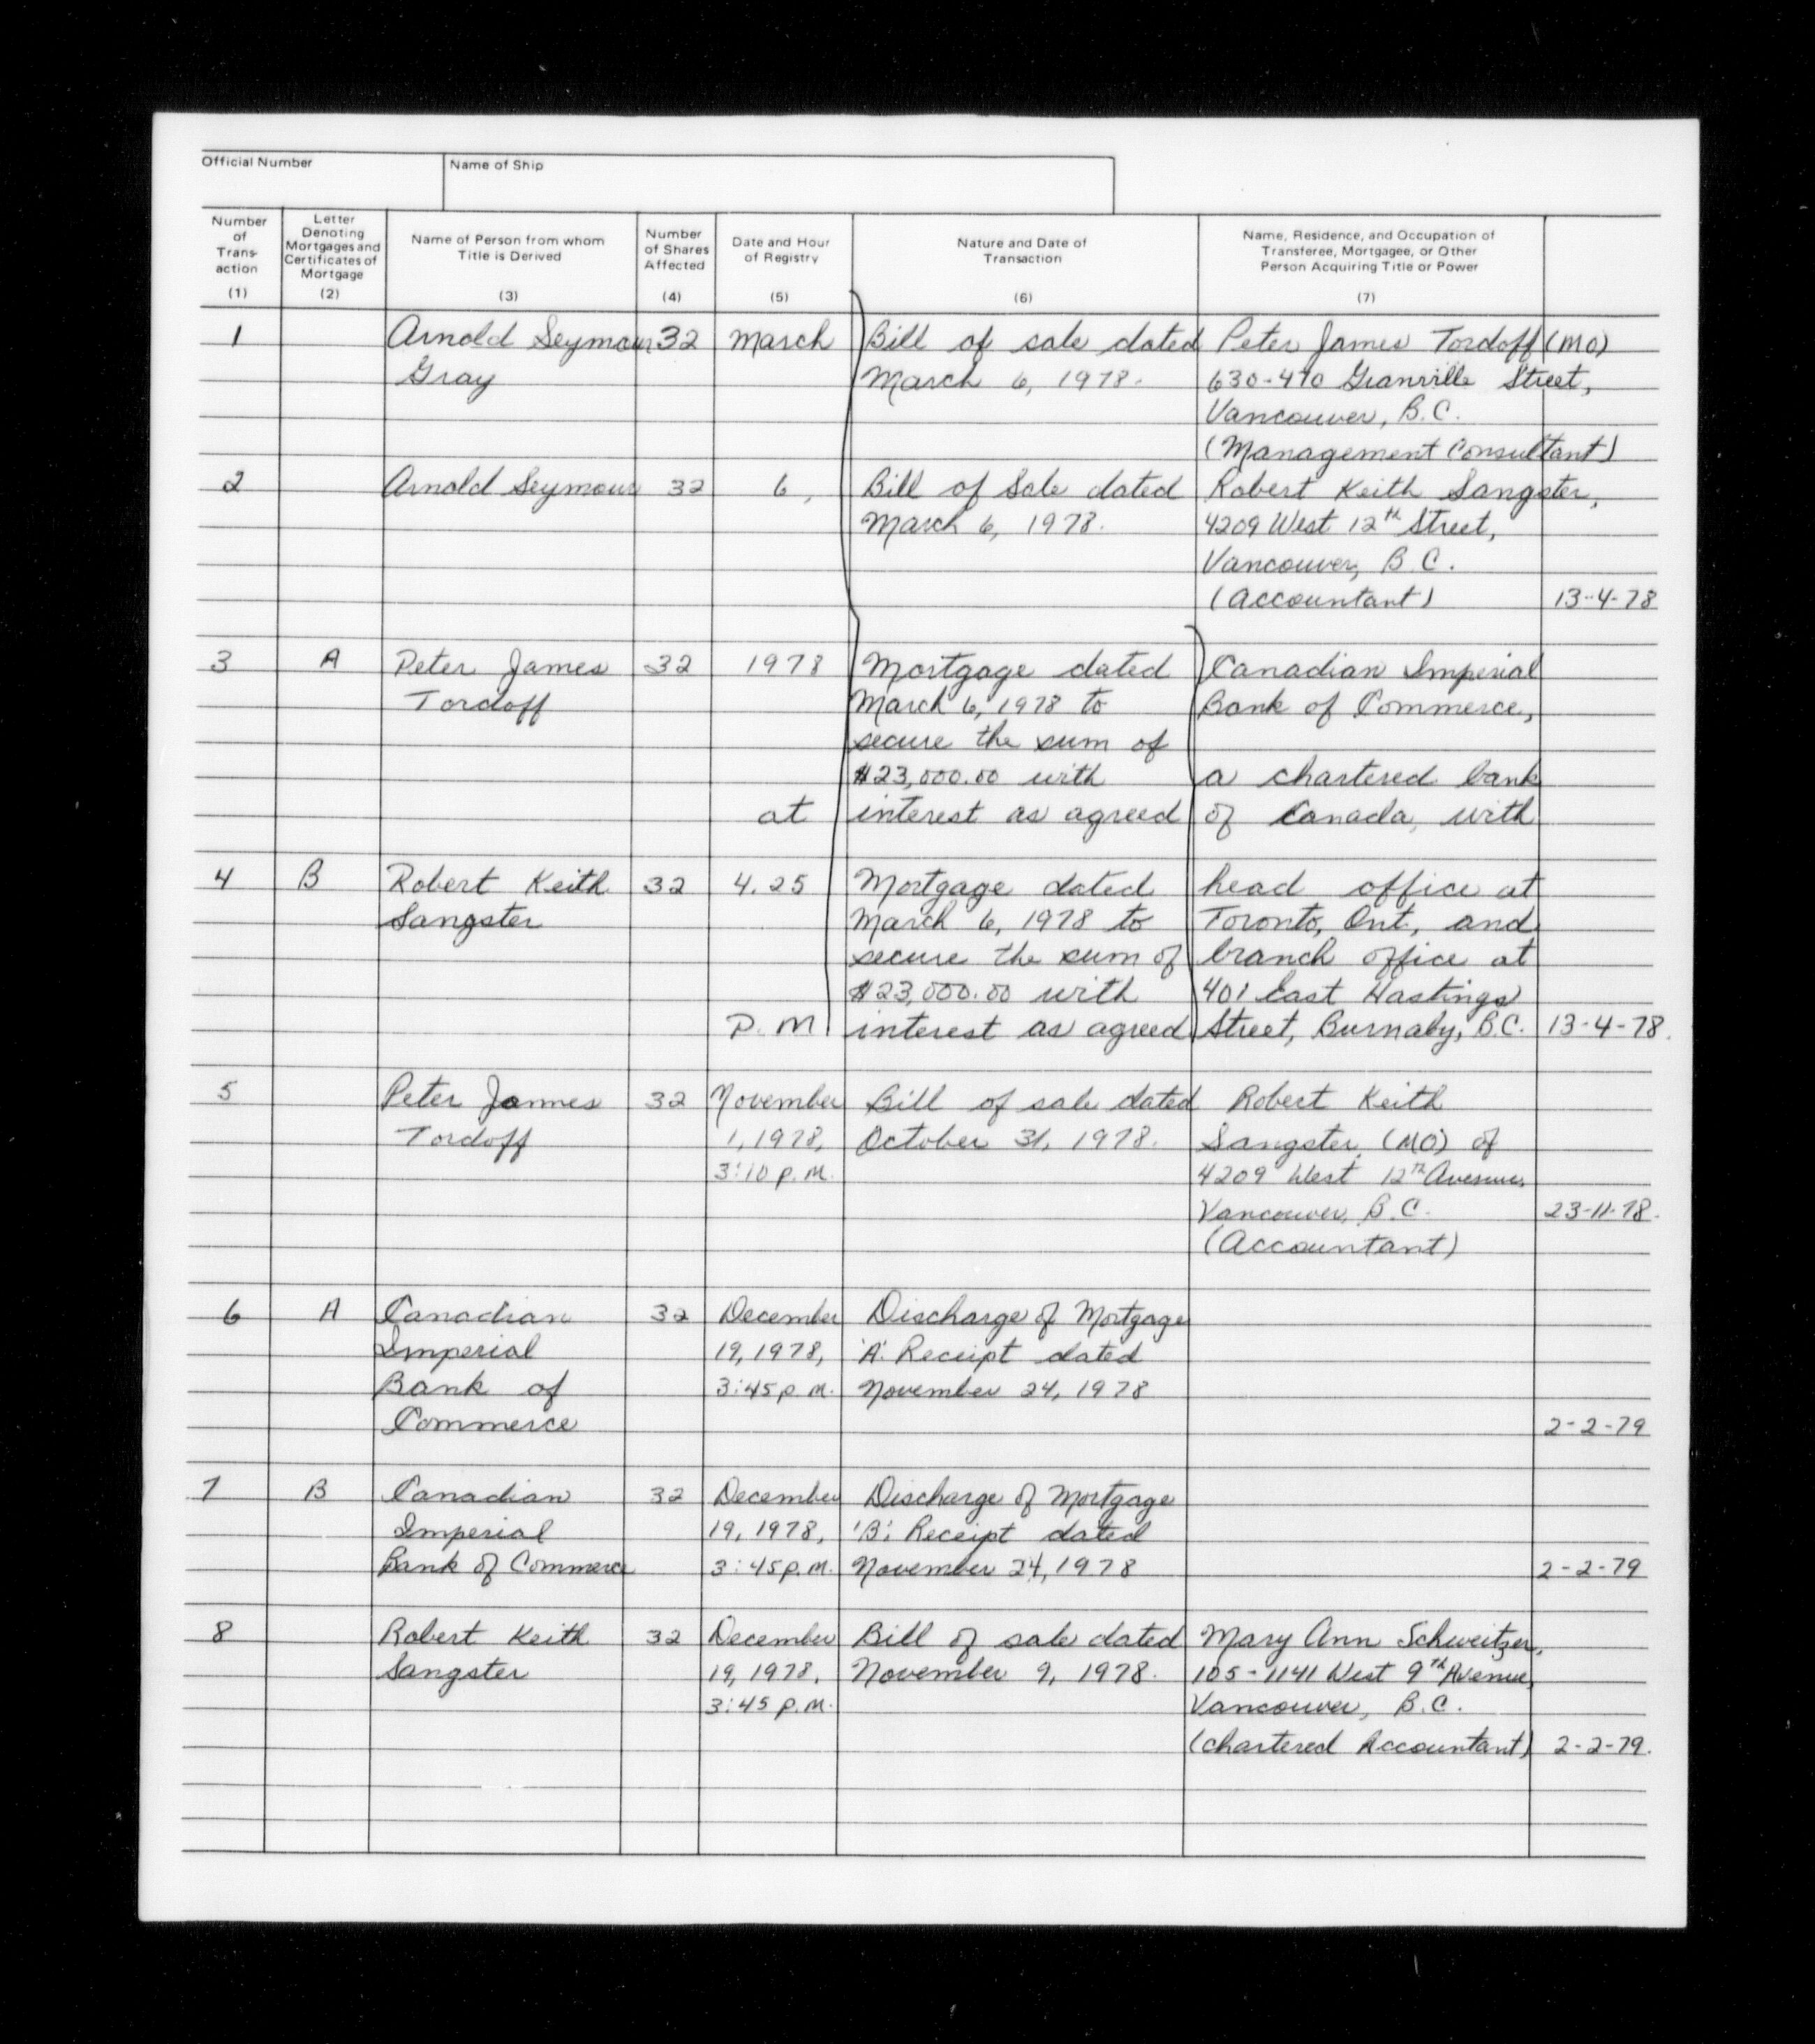 Official Number
Name of Ship
Number of Trans- action (1)
Letter Denoting Mortgages and Certificates of Mortgage (2)
Name of Person from whom Title is Derived (3)
Number of Shares Affected (4)
Date and Hour of Registry (5)
Nature and Date of Transaction (6)
Name, Residence, and Occupation of Transferee, Mortgagee, or Other Person Acquiring Title or Power (7)
1 Arnold Seymour 32 March Bill of sale dated Peter James Tordoff (MO)
Gray March 6, 1978. 630-470 Granville Street,
Vancouver, B.C.
(Management Consultant)
2 Arnold Seymour 32 6, Bill of Sale dated Robert Keith Sangster,
March 6, 1978. 4209 West 12th Street,
Vancouver, B.C.
(Accountant) 13-4-78
3 A Peter James 32 1978 Mortgage dated Canadian Imperial
Tordoff March 6, 1978 to Bank of Commerce,
secure the sum of
$23,000.00 with a chartered bank
at interest as agreed of Canada, with
4 B Robert Keith 32 4.25 Mortgage dated head office at
Sangster March 6, 1978 to Toronto, Ont., and
secure the sum of branch office at
$23,000.00 with 401 East Hastings
P.M. interest as agreed Street, Burnaby, B.C. 13-4-78.
5 Peter James 32 November Bill of sale dated Robert Keith
Tordoff 1, 1978, October 31, 1978. Sangster, (MO) of
3:10 p.m. 4209 West 12th Avenue,
Vancouver, B.C. 23-11-78.
(Accountant)
6 A Canadian 32 December Discharge of Mortgage
Imperial 19, 1978, 'A'. Receipt dated
Bank of 3:45 p.m. November 24, 1978
Commerce 2-2-79
7 B Canadian 32 December Discharge of Mortgage
Imperial 19, 1978, 'B'. Receipt dated
Bank of Commerce 3:45 p.m. November 24, 1978 2-2-79
8 Robert Keith 32 December Bill of sale dated Mary Ann Schweitzer,
Sangster 19, 1978, November 9, 1978. 105-1141 West 9th Avenue,
3:45 p.m. Vancouver, B.C.
(chartered Accountant) 2-2-79.